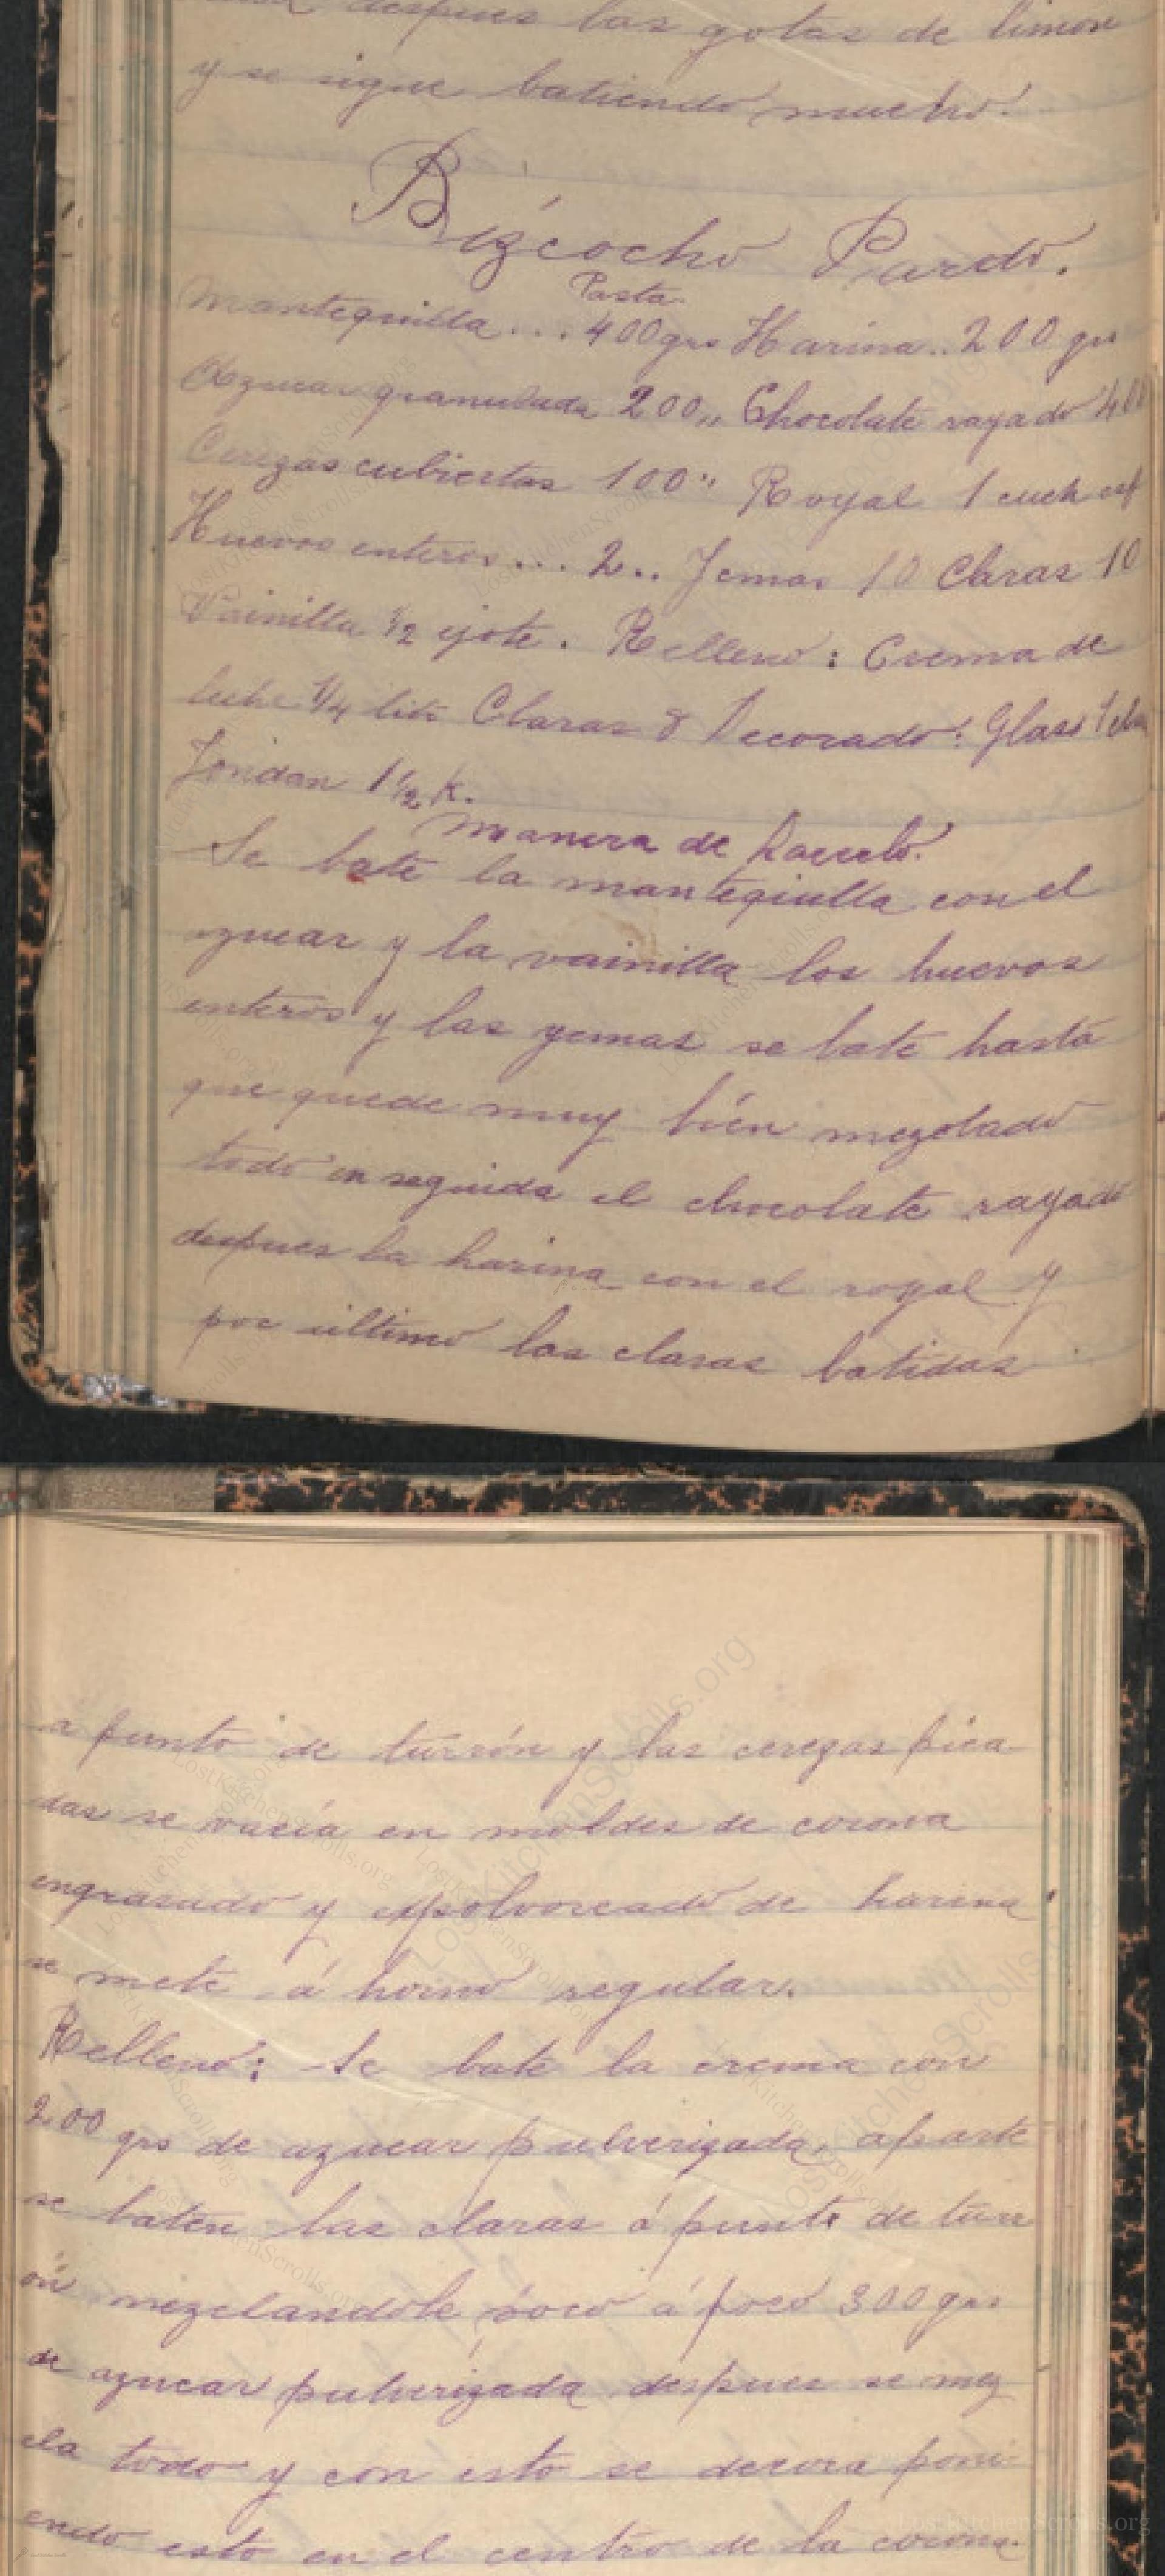 despues las gotas de limón
y se sigue batiendo mucho.
Bizcocho Pardo.
Pasta.
Mantequilla... 400 grs Harina.. 200 grs
Azucar granulada 200,, Chocolate rayado 400
Cerezas cubiertas 100" Royal 1 cuch caf
Huevos enteros... 2.. Jemas 10 Claras 10
Vainilla ½ ejote. Relleno: Crema de
leche ¼ lito Claras 8 Decorado: Glass
Fondan 1½ K.
Manera de hacerlo.
Se bate la mantequilla con el
azucar y la vainilla los huevos
enteros y las yemas se bate hasta
que quede muy bién mezclado
todo en seguida el chocolate rayado
despues la harina con el royal y
por último las claras batidas
a punto de turrón y las cerezas pica
das se vacía en moldes de corona
engrasado y espolvoreado de harina
se mete á horno regular.
Relleno: Se bate la crema con
200 grs de azucar pulverizada, aparte
se baten las claras á punto de turr
ón mezclandole poco á poco 300 grs
de azucar pulverizada despues se mez
cla todo y con esto se decora poni
endo esto en el centro de la corona.